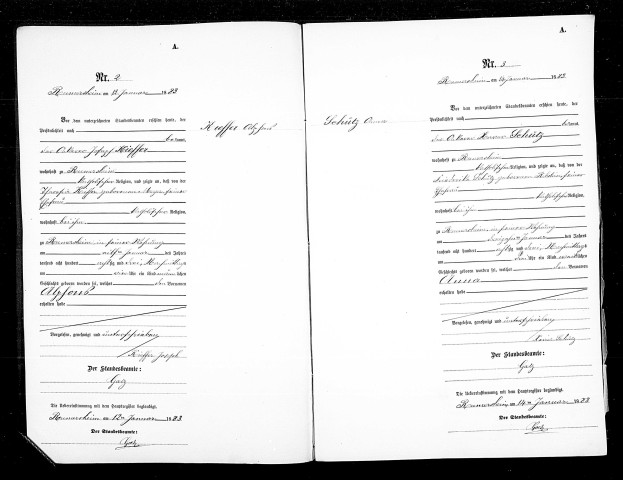 A.
Nr. 2
Rumersheim am 12 Januar 1883
Vor dem unterzeichneten Standesbeamten erschien heute, der
Persönlichkeit nach
bekannt,
der Ackerer Joseph Kieffer
wohnhaft zu Rumersheim
katholischer Religion, und zeigte an, daß von der
geborenen
Ehefrau
katholischer Religion,
wohnhaft bei ihm
zu Rumersheim in seiner Wohnung
am elften Januar des Jahres
tausend acht hundert achtzig und drei, Nachmittags
um Uhr ein Kind männlichen
Geschlechts geboren worden sei, welches den Vornamen
Alphons
erhalten habe
Vorgelesen, genehmigt und unterschrieben
Kieffer Joseph
Der Standesbeamte:
Die Uebereinstimmung mit dem Hauptregister beglaubigt.
Rumersheim am 12ten Januar 1883
Der Standesbeamte:
Kieffer Alphons
A.
Nr. 3
Rumersheim am 14 Januar 1883
Vor dem unterzeichneten Standesbeamten erschien heute, der
Persönlichkeit nach
bekannt,
der Ackerer Schütz
wohnhaft zu Rumersheim
katholischer Religion, und zeigte an, daß von der
Schütz geborenen
Ehefrau
katholischer Religion,
wohnhaft bei ihm
zu Rumersheim in seiner Wohnung
am Januar des Jahres
tausend acht hundert achtzig und drei, Nachmittags
um Uhr ein Kind weiblichen
Geschlechts geboren worden sei, welches den Vornamen
Anna
erhalten habe
Vorgelesen, genehmigt und unterschrieben
Schütz
Der Standesbeamte:
Die Uebereinstimmung mit dem Hauptregister beglaubigt.
Rumersheim am 14ten Januar 1883
Der Standesbeamte:
Schütz Anna